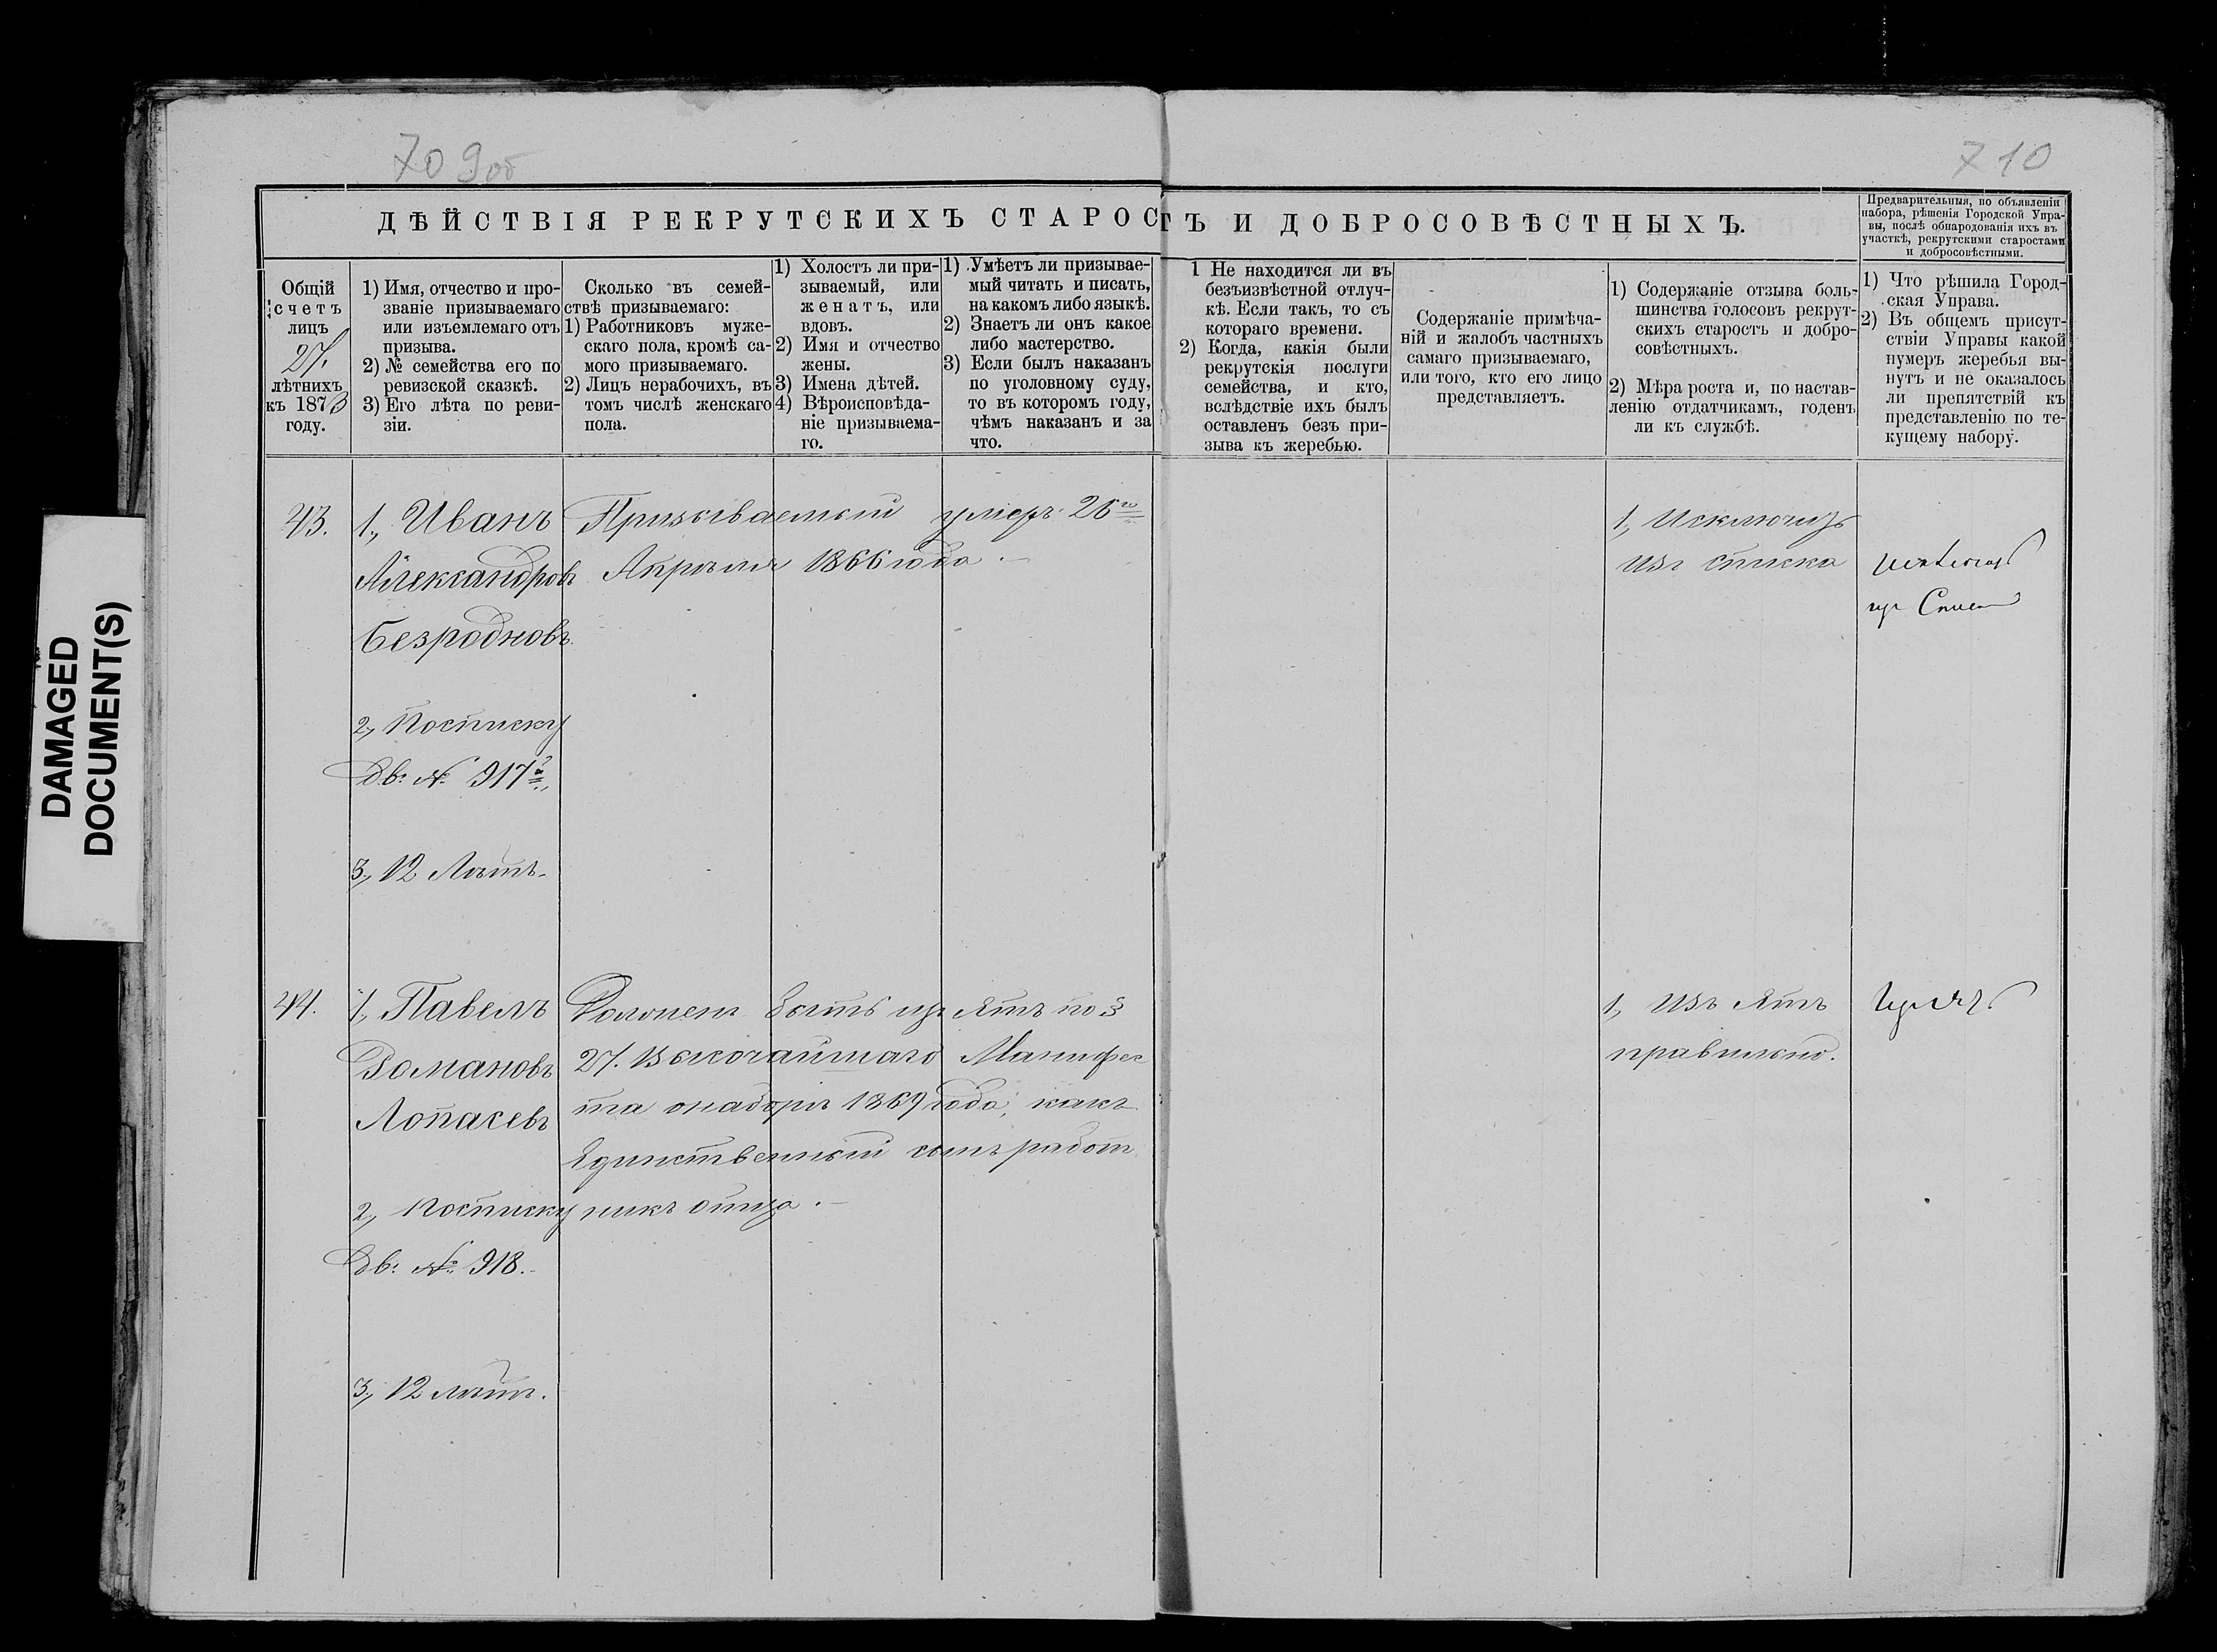 709об
710
ДѢЙСТВІЯ РЕКРУТСКИХЪ СТАРОСТЪ И ДОБРОСОВѢСТНЫХЪ.
Предварительныя, по объявленіи
набора, рѣшенія Городской Упра-
вы, послѣ обнародованія ихъ въ
участкѣ, рекрутскими старостами
и добросовѣстными.
Общій
счетъ
лицъ
27.
лѣтнихъ
къ 1873
году.
1) Имя, отчество и про-
званіе призываемаго
или изъемлемаго отъ
призыва.
2) № семейства его по
ревизской сказкѣ.
3) Его лѣта по реви-
зіи.
Сколько въ семей-
ствѣ призываемаго:
1) Работниковъ муже-
скаго пола, кромѣ са-
мого призываемаго.
2) Лицъ нерабочихъ, въ
томъ числѣ женскаго
пола.
1) Холостъ ли при-
зываемый, или
женатъ, или
вдовъ.
2) Имя и отчество
жены.
3) Имена дѣтей.
4) Вѣроисповѣда-
ніе призываема-
го.
1) Умѣетъ ли призывае-
мый читать и писать,
на какомъ либо языкѣ.
2) Знаетъ ли онъ какое
либо мастерство.
3) Если былъ наказанъ
по уголовному суду,
то въ которомъ году,
чѣмъ наказанъ и за
что.
1 Не находится ли въ
безъизвѣстной отлуч-
кѣ. Если такъ, то съ
котораго времени.
2) Когда, какія были
рекрутскія послуги
семейства, и кто,
вслѣдствіе ихъ былъ
оставленъ безъ при-
зыва къ жеребью.
Содержаніе примѣча-
ній и жалобъ частныхъ
самаго призываемаго,
или того, кто его лицо
представляетъ.
1) Содержаніе отзыва боль-
шинства голосовъ рекрут-
скихъ старостъ и добро-
совѣстныхъ.
2) Мѣра роста и, по настав-
ленію отдатчикамъ, годенъ
ли къ службѣ.
1) Что рѣшила Город-
ская Управа.
2) Въ общемъ присут-
ствіи Управы какой
нумеръ жеребья вы-
нутъ и не оказалось
ли препятствій къ
представленію по те-
кущему набору.
43.
1, Иванъ
Александровъ
Безродновъ.
2, По списку
Дв: № 917
3, 12 Лѣтъ.
Призываемый умеръ 26го
Апрѣля 1866 года.
1, Исключить
изъ списка
44.
1, Павелъ
Романовъ
Лопасевъ
2, По списку
Дв: № 918.
3, 12 лѣтъ.
Долженъ быть изъятъ по §
27. Высочайшаго Манифес
та о наборѣ 1869 года, какъ
Единственный сынъ работ
никъ отца.
1, Изъятъ
правильно.
DAMAGED
DOCUMENT(S)